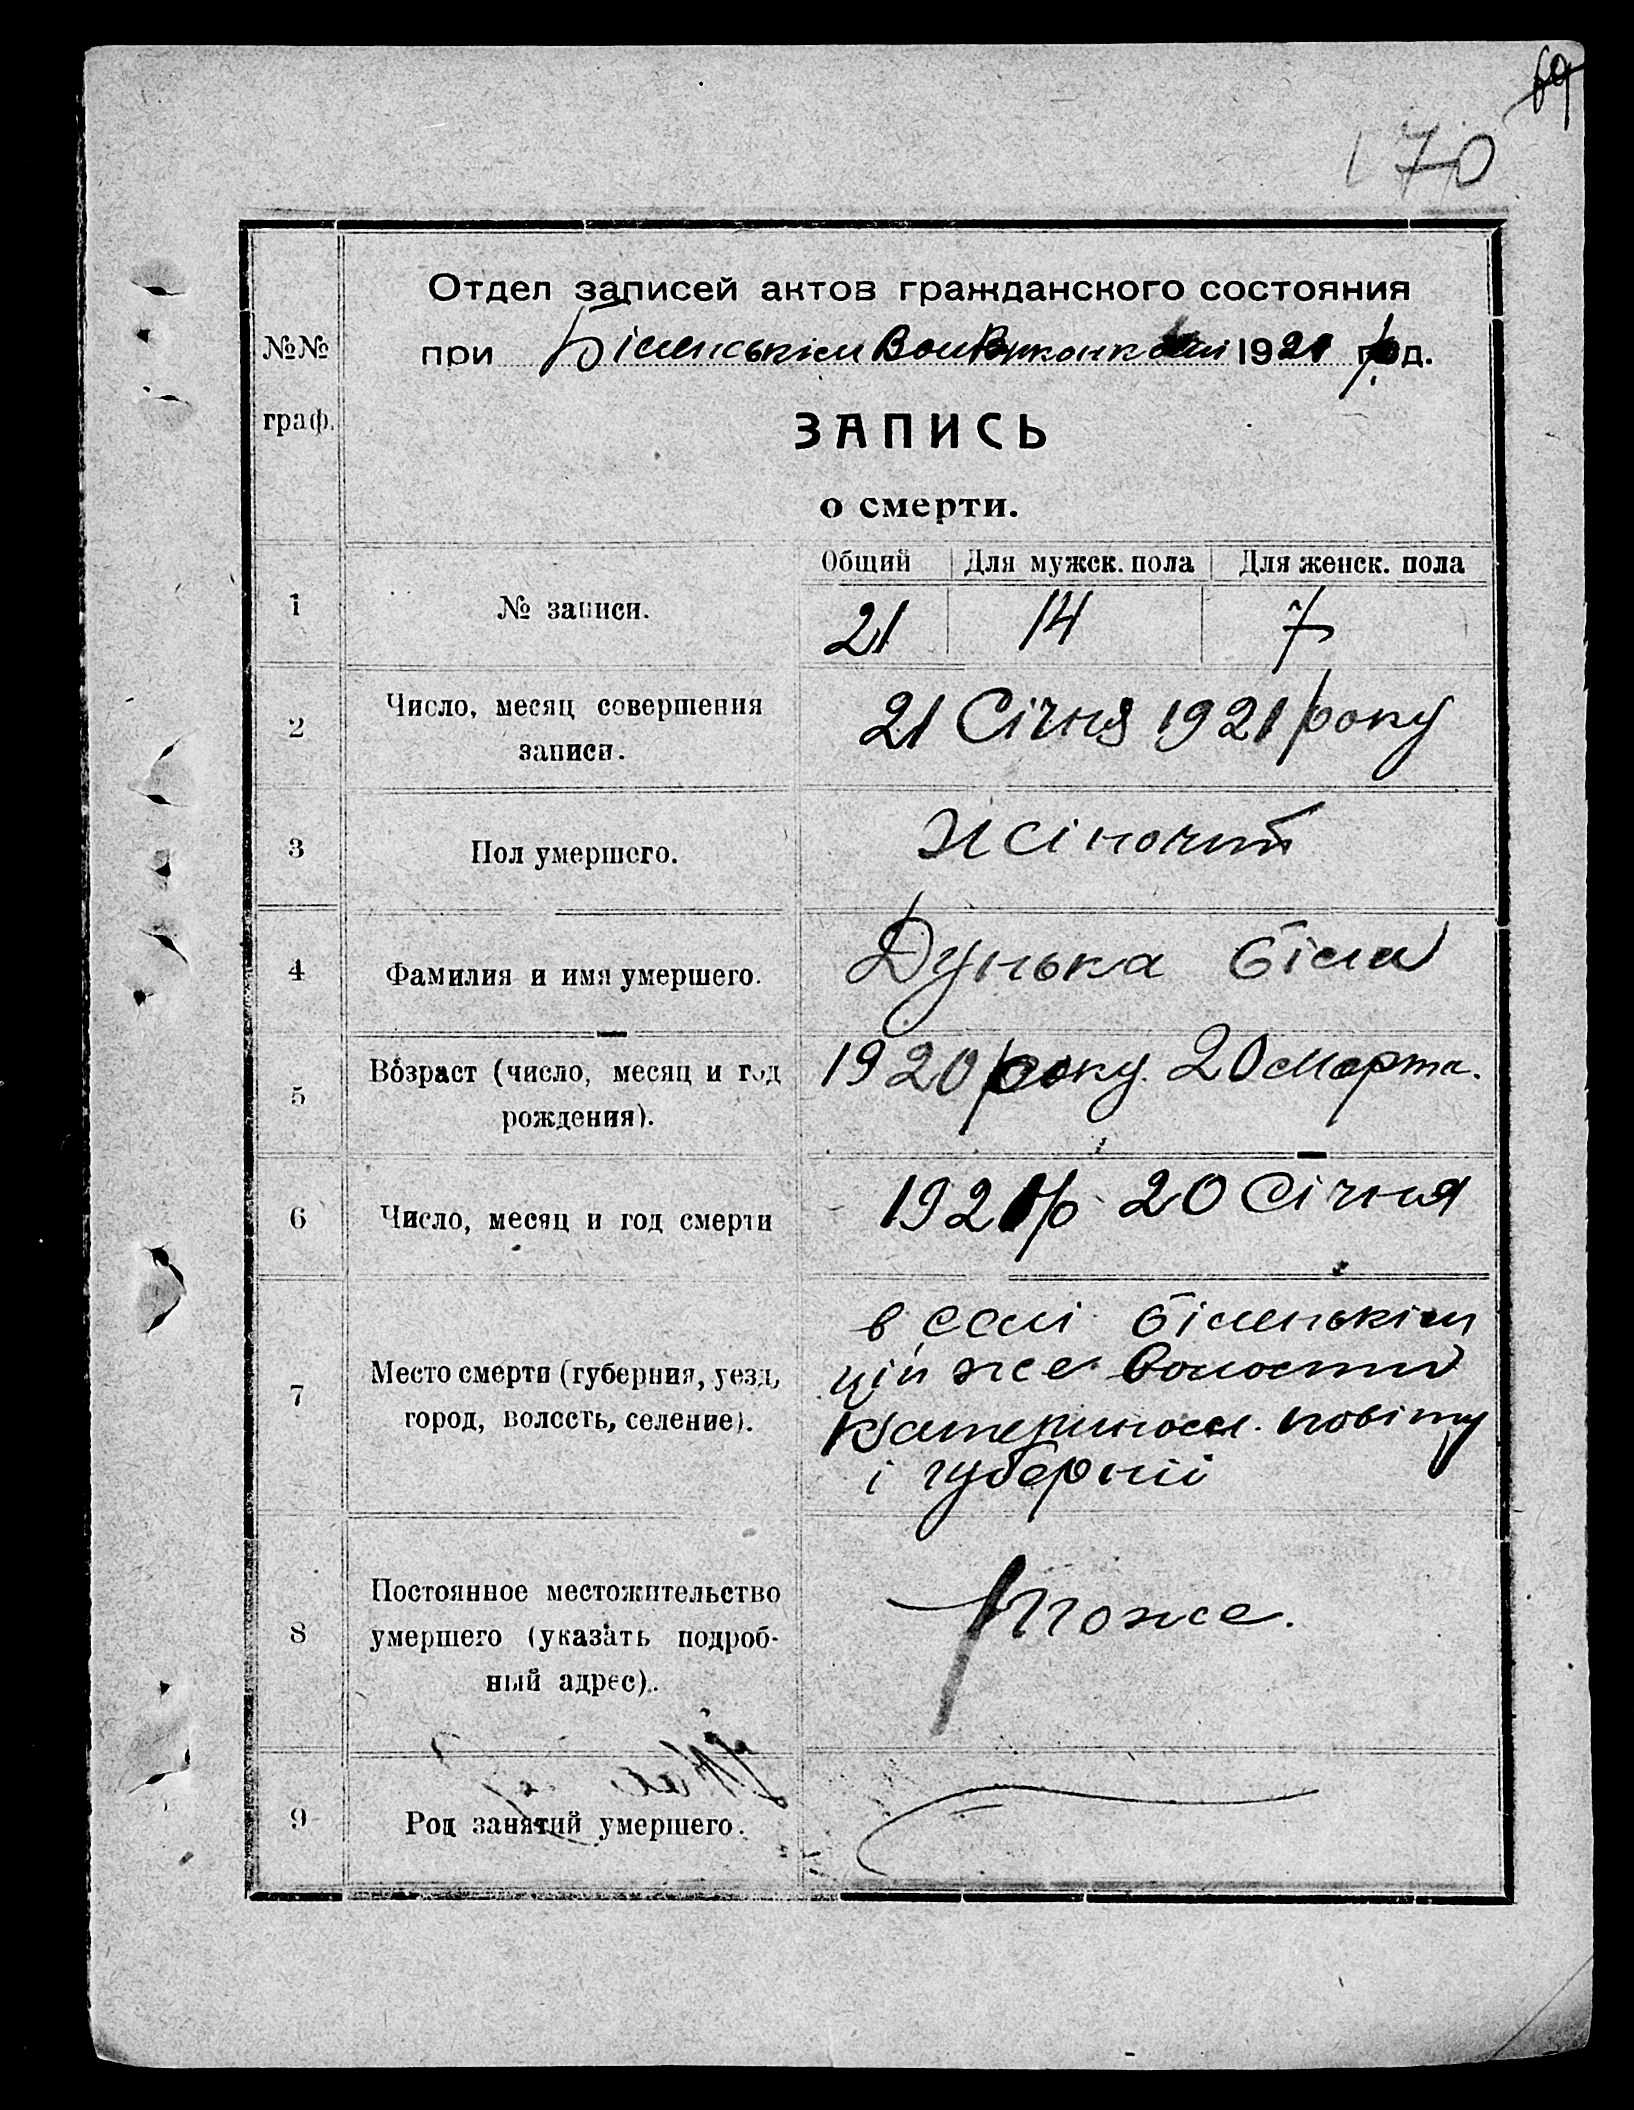 69
170
Отдел записей актов гражданского состояния
№№ при Біленськім 1921 р.
граф.
ЗАПИСЬ
о смерти.
Общий Для мужск. пола Для женск. пола
1 № записи. 21 14 7
2 Число, месяц совершения записи. 21 Січня 1921 року
3 Пол умершего. Жіночий
4 Фамилия и имя умершего. Дунька Біла
5 Возраст (число, месяц и год рождения). 1920 року. 20 Марта.
6 Число, месяц и год смерти 1921 р. 20 Січня
7 Место смерти (губерния, уезд, город, волость, селение). в селі Біленькім
ціи же волости
Катериносл. повіту
і губерніі
8 Постоянное местожительство умершего (указать подроб-
ный адрес). тоже.
9 Род занятий умершего.